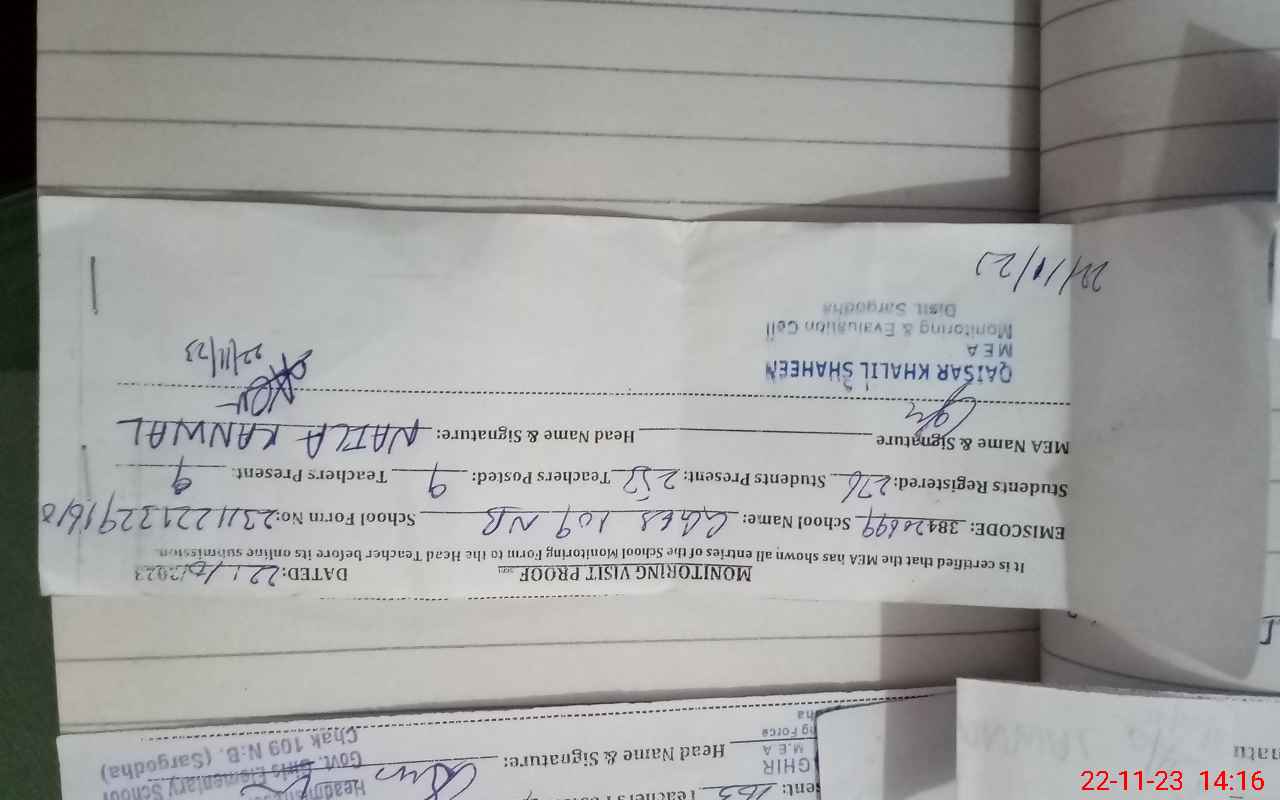 MONITORING VISIT PROOF DATED: 22/11/2023
It is certified that the MEA has shown, all entries of the School Monitoring Form to the Head Teacher before its online submission.
EMISCODE: 38420699 School Name: GGES 109 NB School Form No:
Students Registered: 276 Students Present: 252 Teachers Posted: 9 Teachers Present 9
MEA Name & Signature Head Name & Signature: NAILA KANWAL
QAISAR KHALIL SHAHEEN
M E A
Monitoring & Evaluation Cell
Distt. Sargodha
22/11/23
22/11/23
Teachers
Head Name & Signature:
GHIR
M.E A
ng Force
ha
Govt. Girls Elementary School
Chak 109 N.B. (Sargodha)
22-11-23 14:16